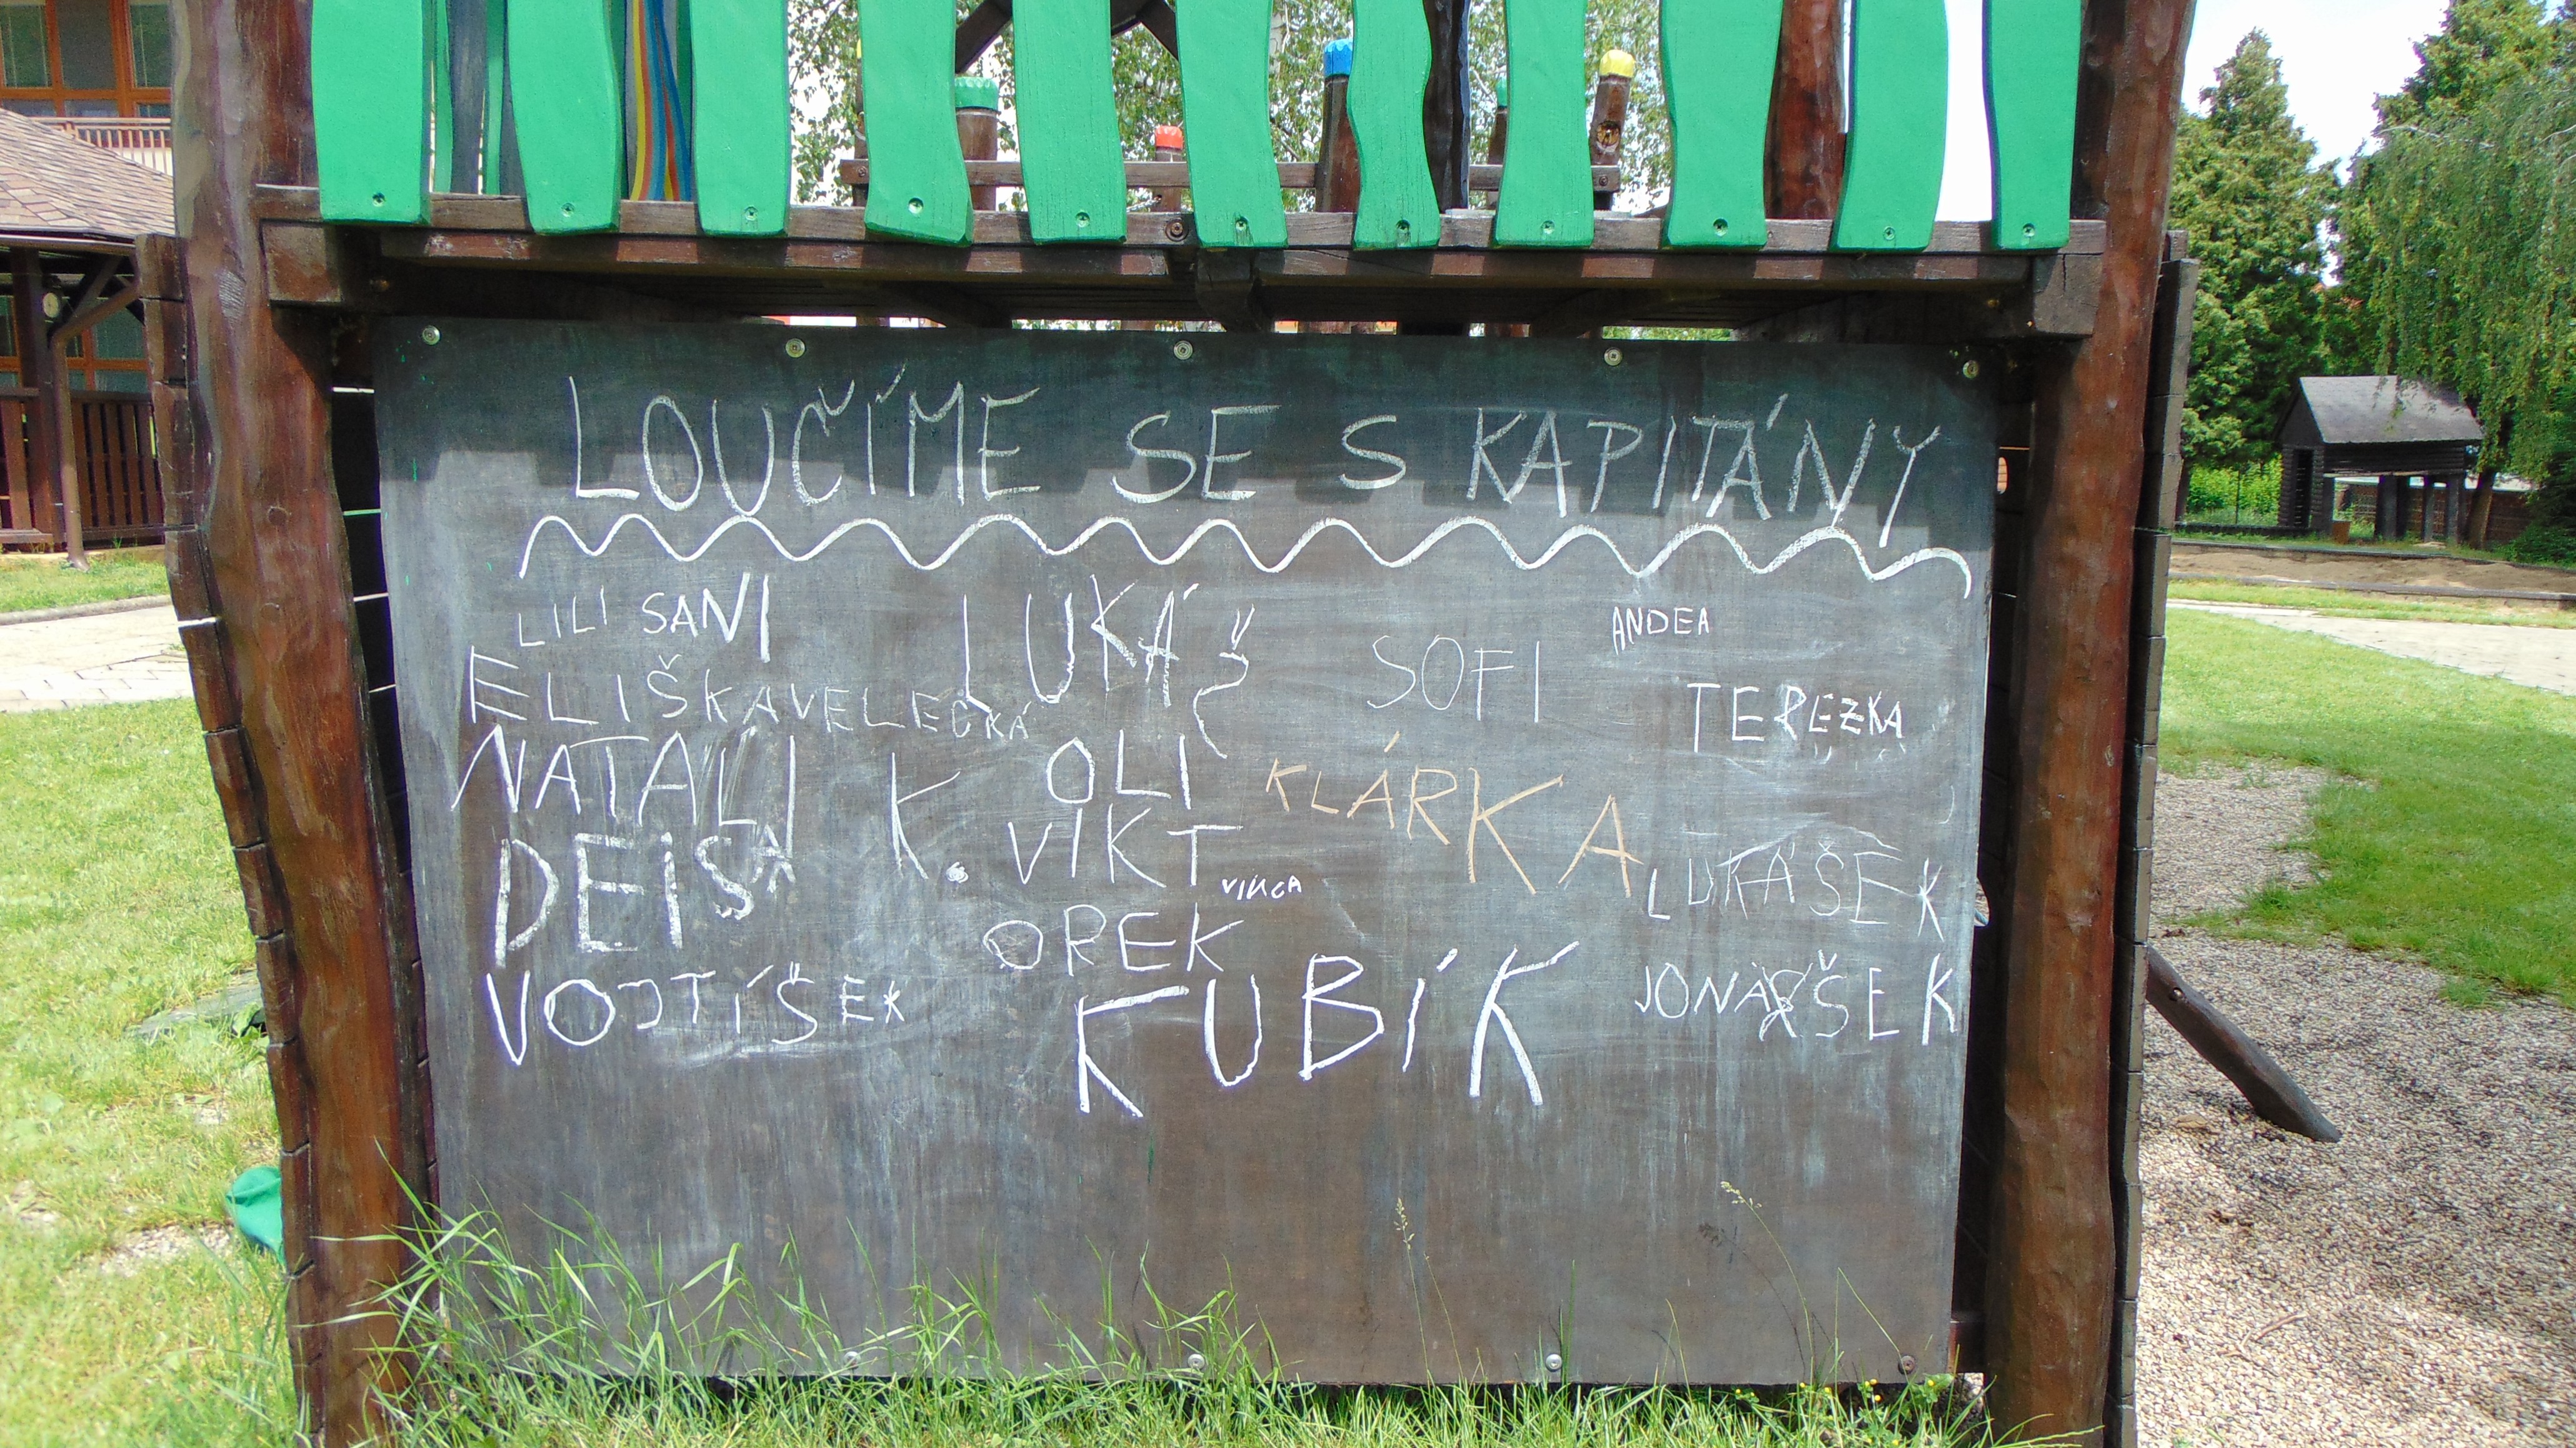 LOUČÍME SE S KAPITÁNY
LILI SANI LUKÁŠ SOFI ANDEA
ELIŠKA VELECKÁ TEREZKA
NATALI K. OLI KLÁRKA
DEISA VIKT LUKÁŠEK
OREK
VOJTÍŠEK KUBÍK JONÁŠEK